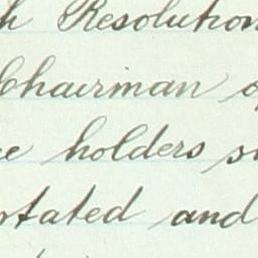 Resolution
Chairman
holders
stated and